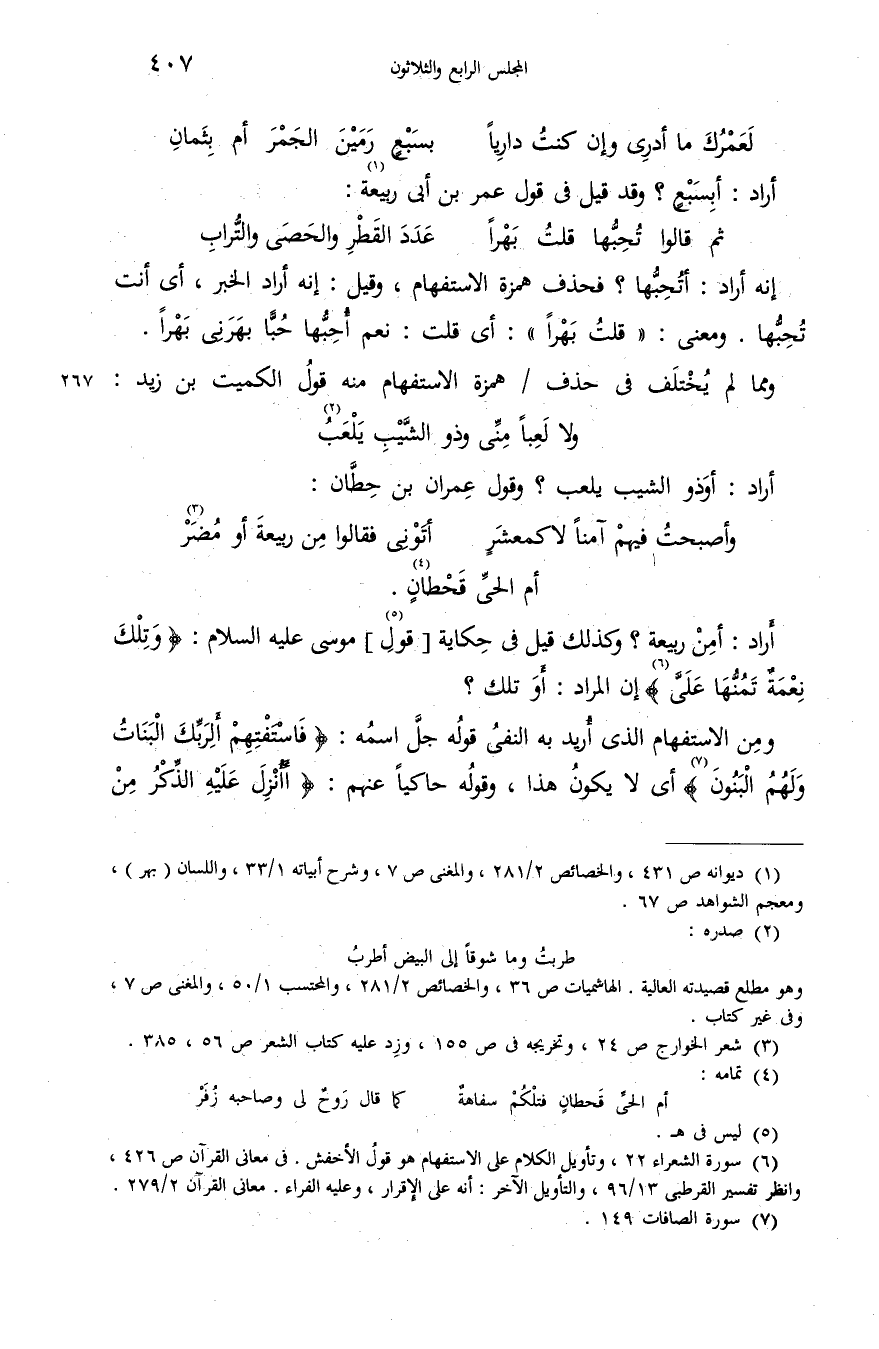 المجلس الرابع والثلاثون ٤٠٧
لَعَمْرُكَ ما أدرِى وإن كنتُ دارِياً بسَبْعٍ رَمَيْنَ الجَمْرَ أم بِثَمانِ
أراد : أبِسَبْعٍ ؟ وقد قيل فى قول عمر بن أبى ربيعة (١) :
ثم قالوا تُحِبُّها قلتُ بَهْراً عَدَدَ القَطْرِ والحَصَى والتُّرابِ
إنه أراد : أتُحِبُّها ؟ فحذف همزة الاستفهام ، وقيل : إنه أراد الخبر ، أى أنت
تُحِبُّها . ومعنى : « قلتُ بَهْراً » : أى قلت : نعم أُحِبُّها حُبًّا بهَرَنِى بَهْراً .
ومما لم يُخْتلَف فى حذف / همزة الاستفهام منه قولُ الكميت بن زيد : ٢٦٧
ولا لَعِباً مِنِّى وذو الشَّيْبِ يَلْعَبُ (٢)
أراد : أوَذو الشيب يلعب ؟ وقول عِمران بن حِطَّان :
وأصبحتُ فيهمْ آمناً لاكمعشَرٍ أتَوْنِى فقالوا مِن ربيعةَ أو مُضَرْ (٣)
أم الحىِّ قَحْطانٍ (٤) .
أراد : أمِنْ ربيعة ؟ وكذلك قيل فى حِكاية [ قولِ (٥) ] موسى عليه السلام : ﴿ وَتِلْكَ
نِعْمَةٌ تَمُنُّهَا عَلَىَّ (٦) ﴾ إن المراد : أوَ تلك ؟
ومِن الاستفهام الذى أُريد به النفىُ قولُه جلَّ اسمُه : ﴿ فَاسْتَفْتِهِمْ أَلِرَبِّكَ الْبَنَاتُ
وَلَهُمُ الْبَنُونَ (٧) ﴾ أى لا يكونُ هذا ، وقولُه حاكياً عنهم : ﴿ أَأُنْزِلَ عَلَيْهِ الذِّكْرُ مِنْ
(١) ديوانه ص ٤٣١ ، والخصائص ٢٨١/٢ ، والمغنى ص ٧ ، وشرح أبياته ٣٣/١ ، واللسان ( بهر ) ،
ومعجم الشواهد ص ٦٧ .
(٢) صدره :
طربتُ وما شوقاً إلى البيض أطربُ
وهو مطلع قصيدته العالية . الهاشميات ص ٣٦ ، والخصائص ٢٨١/٢ ، والمحتسب ٥٠/١ ، والمغنى ص ٧ ،
وفى غير كتاب .
(٣) شعر الخوارج ص ٢٤ ، وتخريجه فى ص ١٥٥ ، وزِد عليه كتاب الشعر ص ٥٦ ، ٣٨٥ .
(٤) تمامه :
أم الحىِّ قَحطانٍ فتلْكُمْ سفاهةٌ كما قال رَوحٌ لى وصاحبه زُفَرْ
(٥) ليس فى هـ .
(٦) سورة الشعراء ٢٢ ، وتأويل الكلام على الاستفهام هو قولُ الأخفش . فى معانى القرآن ص ٤٢٦ ،
وانظر تفسير القرطبى ٩٦/١٣ ، والتأويل الآخر : أنه على الإقرار ، وعليه الفراء . معانى القرآن ٢٧٩/٢ .
(٧) سورة الصافات ١٤٩ .